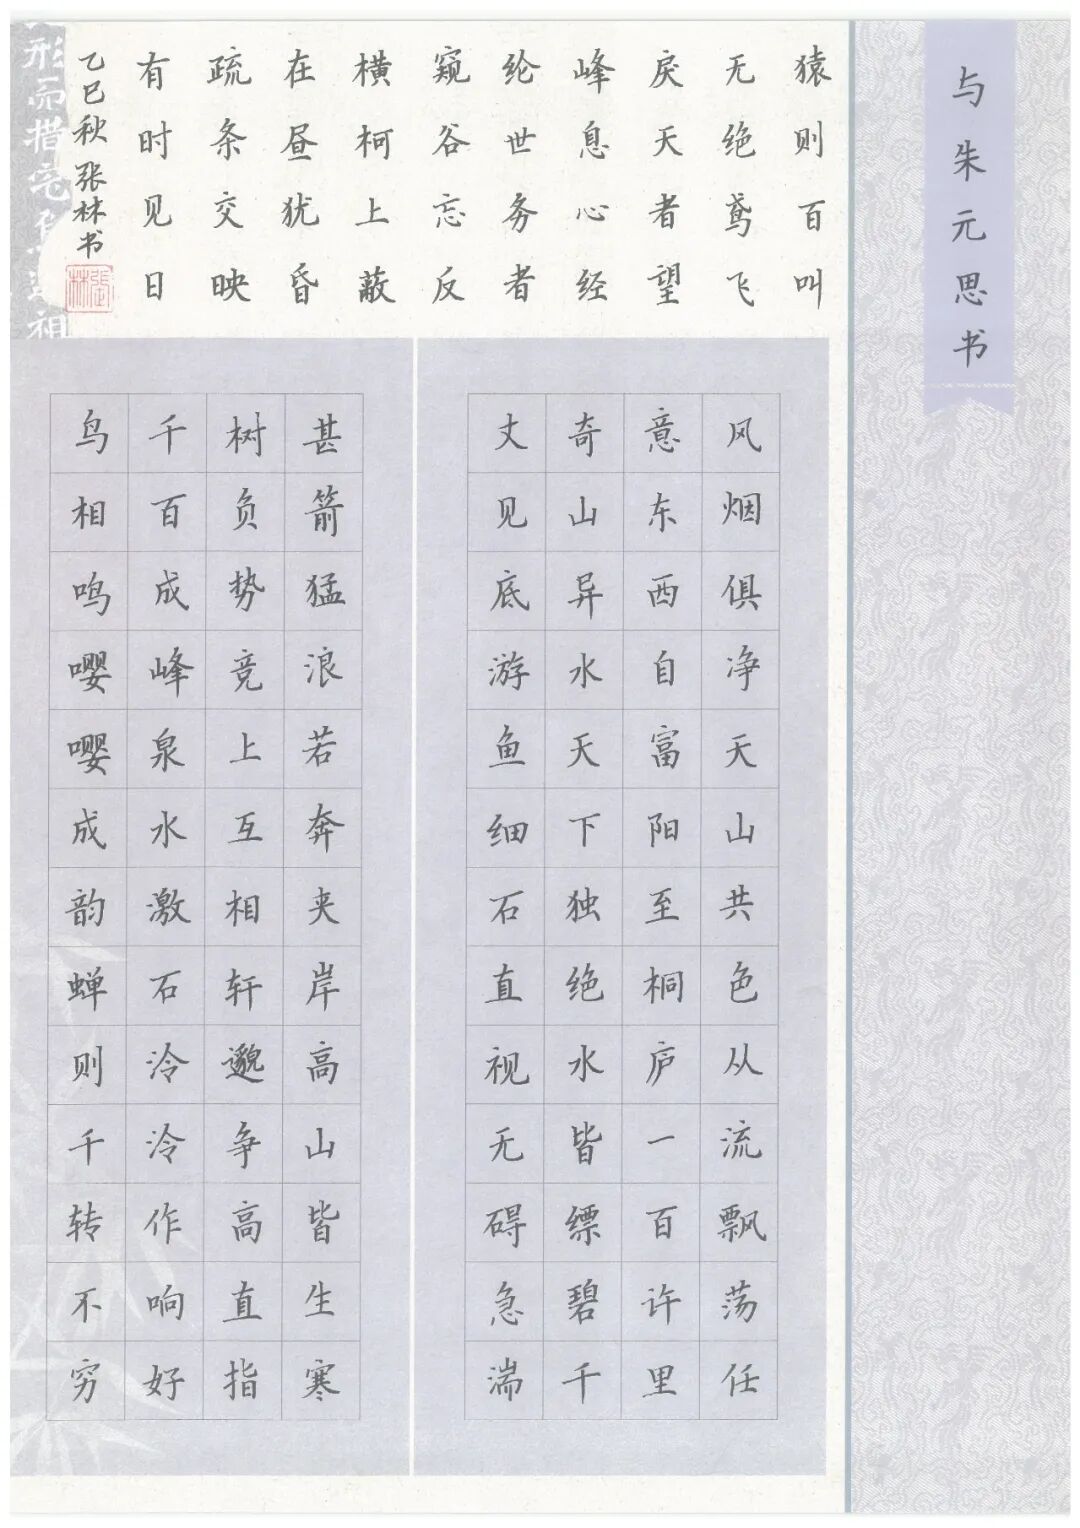 与朱元思书
风烟俱净天山共色从流飘荡任
意东西自富阳至桐庐一百许里
奇山异水天下独绝水皆缥碧千
丈见底游鱼细石直视无碍急湍
甚箭猛浪若奔夹岸高山皆生寒
树负势竞上互相轩邈争高直指
千百成峰泉水激石泠泠作响好
鸟相鸣嘤嘤成韵蝉则千转不穷
猿则百叫
无绝鸢飞
戾天者望
峰息心经
纶世务者
窥谷忘反
横柯上蔽
在昼犹昏
疏条交映
有时见日
乙巳秋张林书
張林